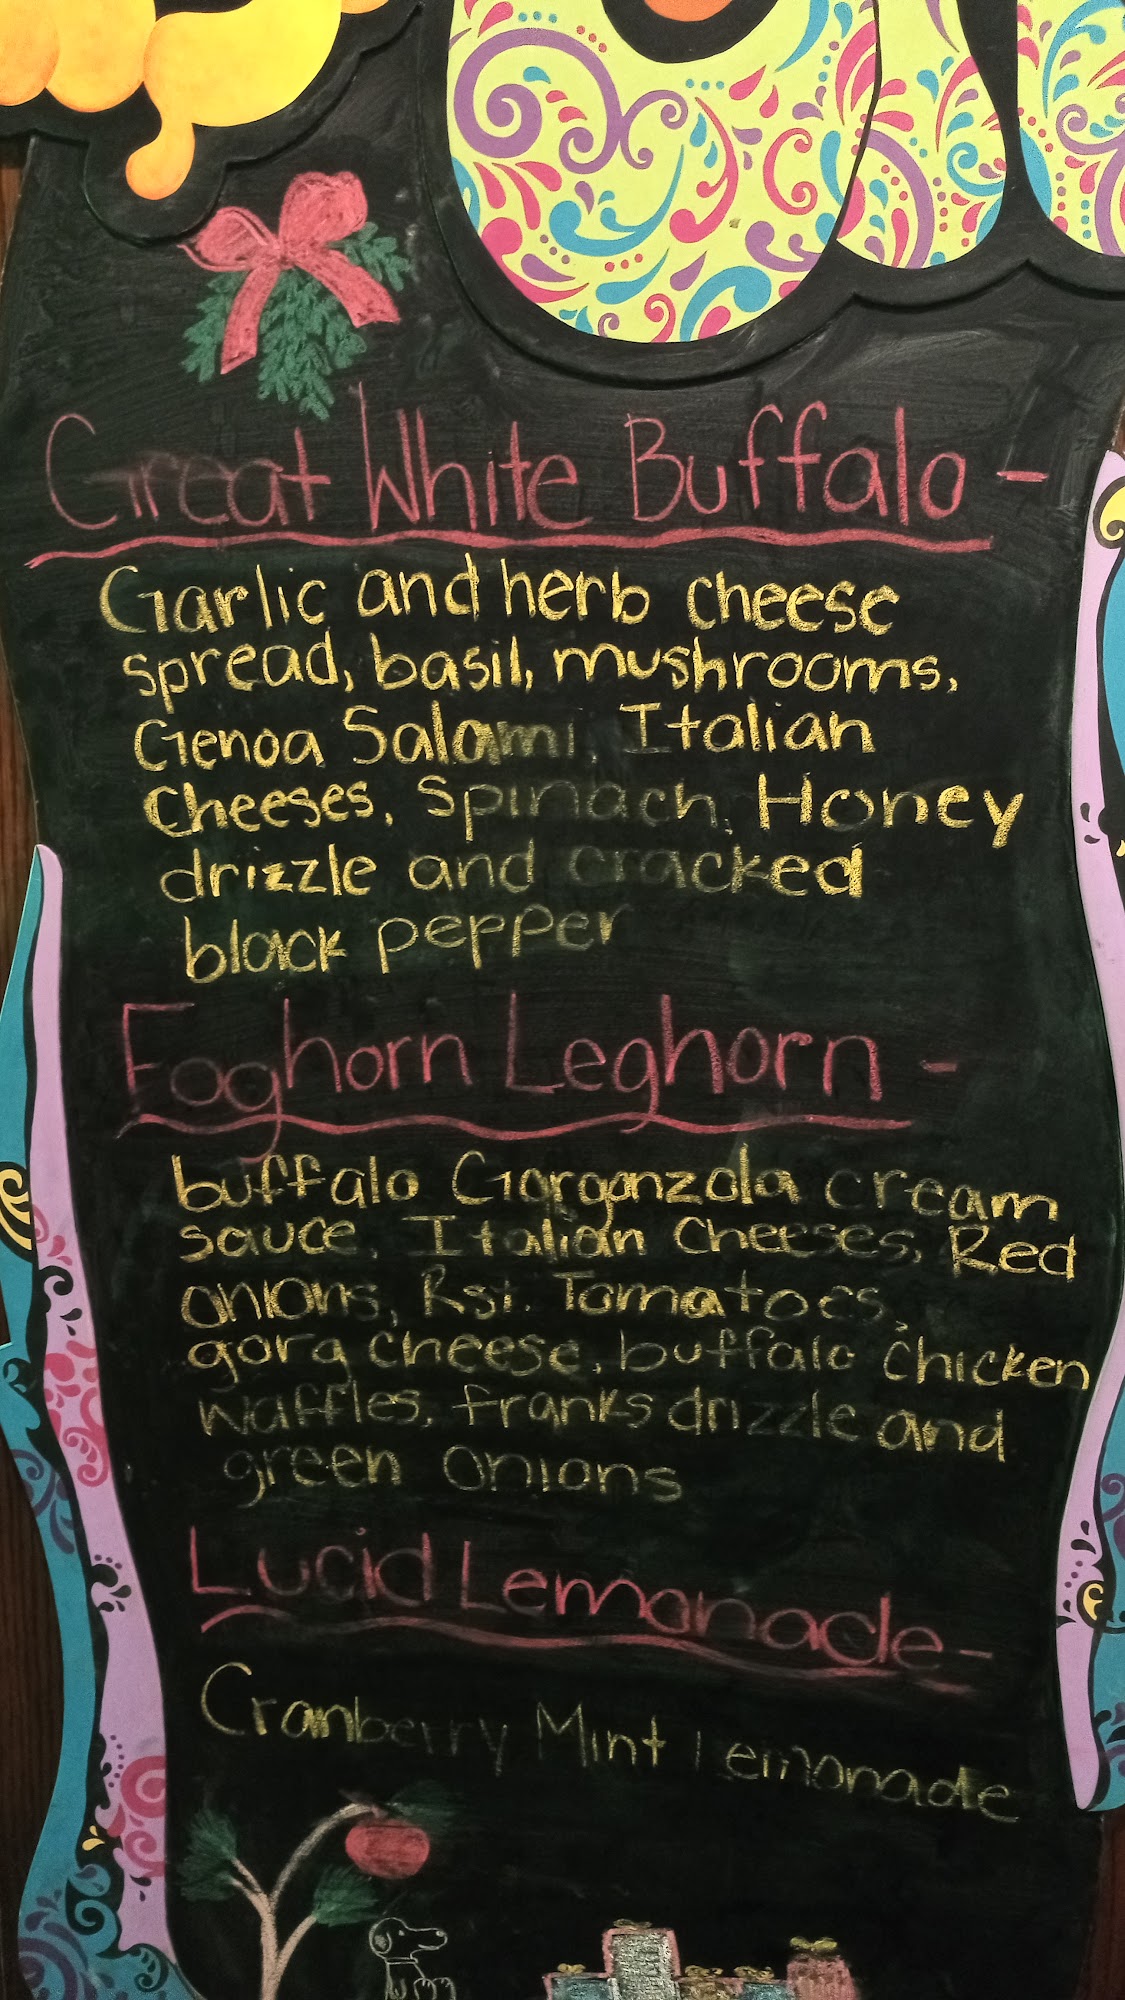 Great White Buffalo -
Garlic and herb cheese
spread, basil, mushrooms,
Genoa Salami, Italian
Cheeses, Spinach, Honey
drizzle and cracked
black pepper
Foghorn Leghorn -
buffalo Gorgonzola cream
sauce, Italian Cheeses, Red
onions, Rst. Tomatoes,
gorg cheese, buffalo chicken
waffles, franks drizzle and
green onions
Lucid Lemonade -
Cranberry Mint Lemonade